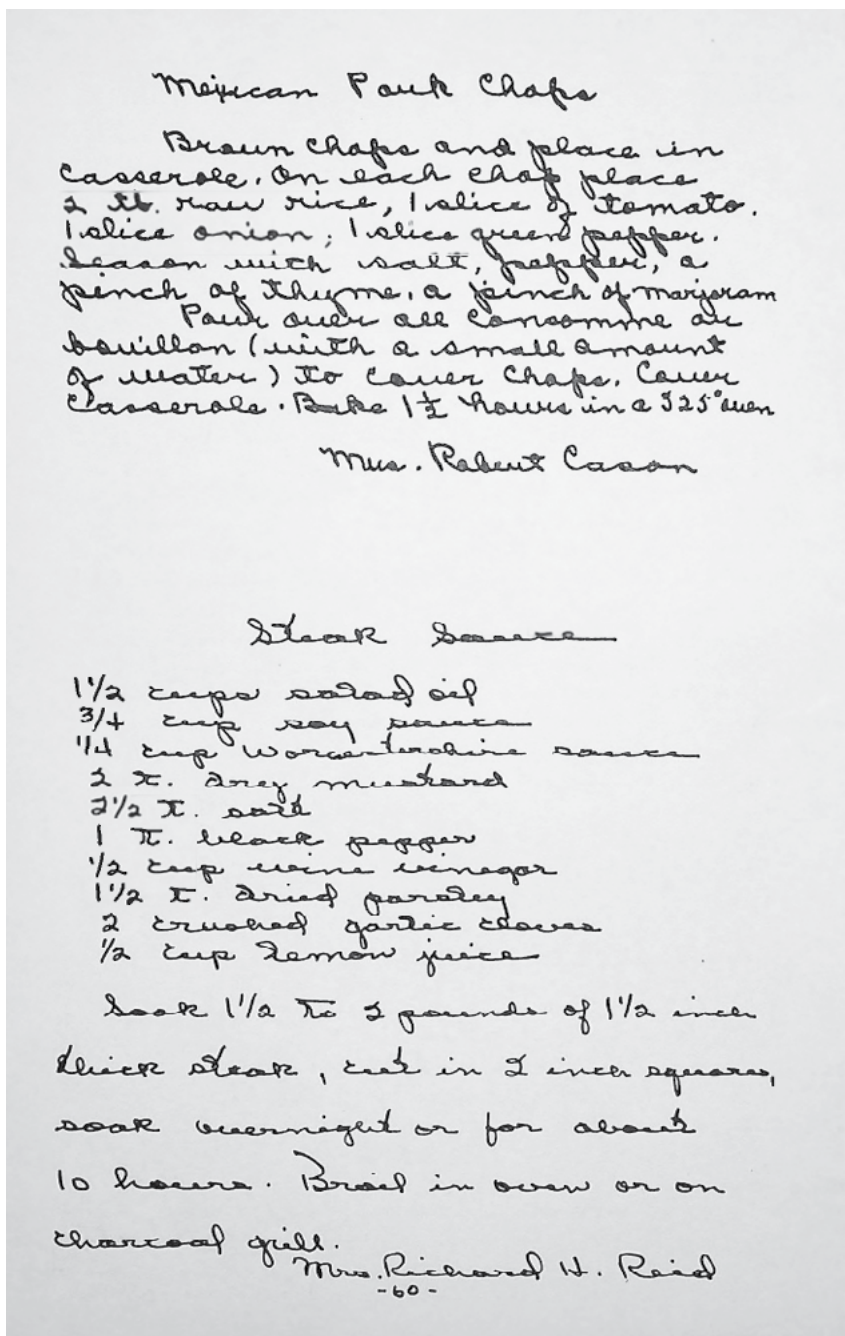 Mexican Pork Chops
Brown chops and place in
casserole. On each chop place
2 tb. raw rice, 1 slice of tomato.
1 slice onion; 1 slice green pepper.
Season with salt, pepper, a
pinch of thyme, a pinch of marjoram
Pour over all consomme or
bouillon (with a small amount
of water) to cover chops. Cover
casserole. Bake 1½ hours in a 325° oven
Mrs. Robert Cason
Steak Sauce
1 1/2 cups salad oil
3/4 cup soy sauce
1/4 cup Worcestershire sauce
2 T. drey mustard
2 1/2 T. salt
1 T. black pepper
1/2 cup wine vinegar
1 1/2 T. dried parsley
2 crushed garlic cloves
1/2 cup lemon juice
Soak 1 1/2 to 2 pounds of 1 1/2 inch
thick steak, cut in 2 inch squares,
soak overnight or for about
10 hours. Broil in oven or on
charcoal grill.
Mrs. Richard H. Reid
-60-